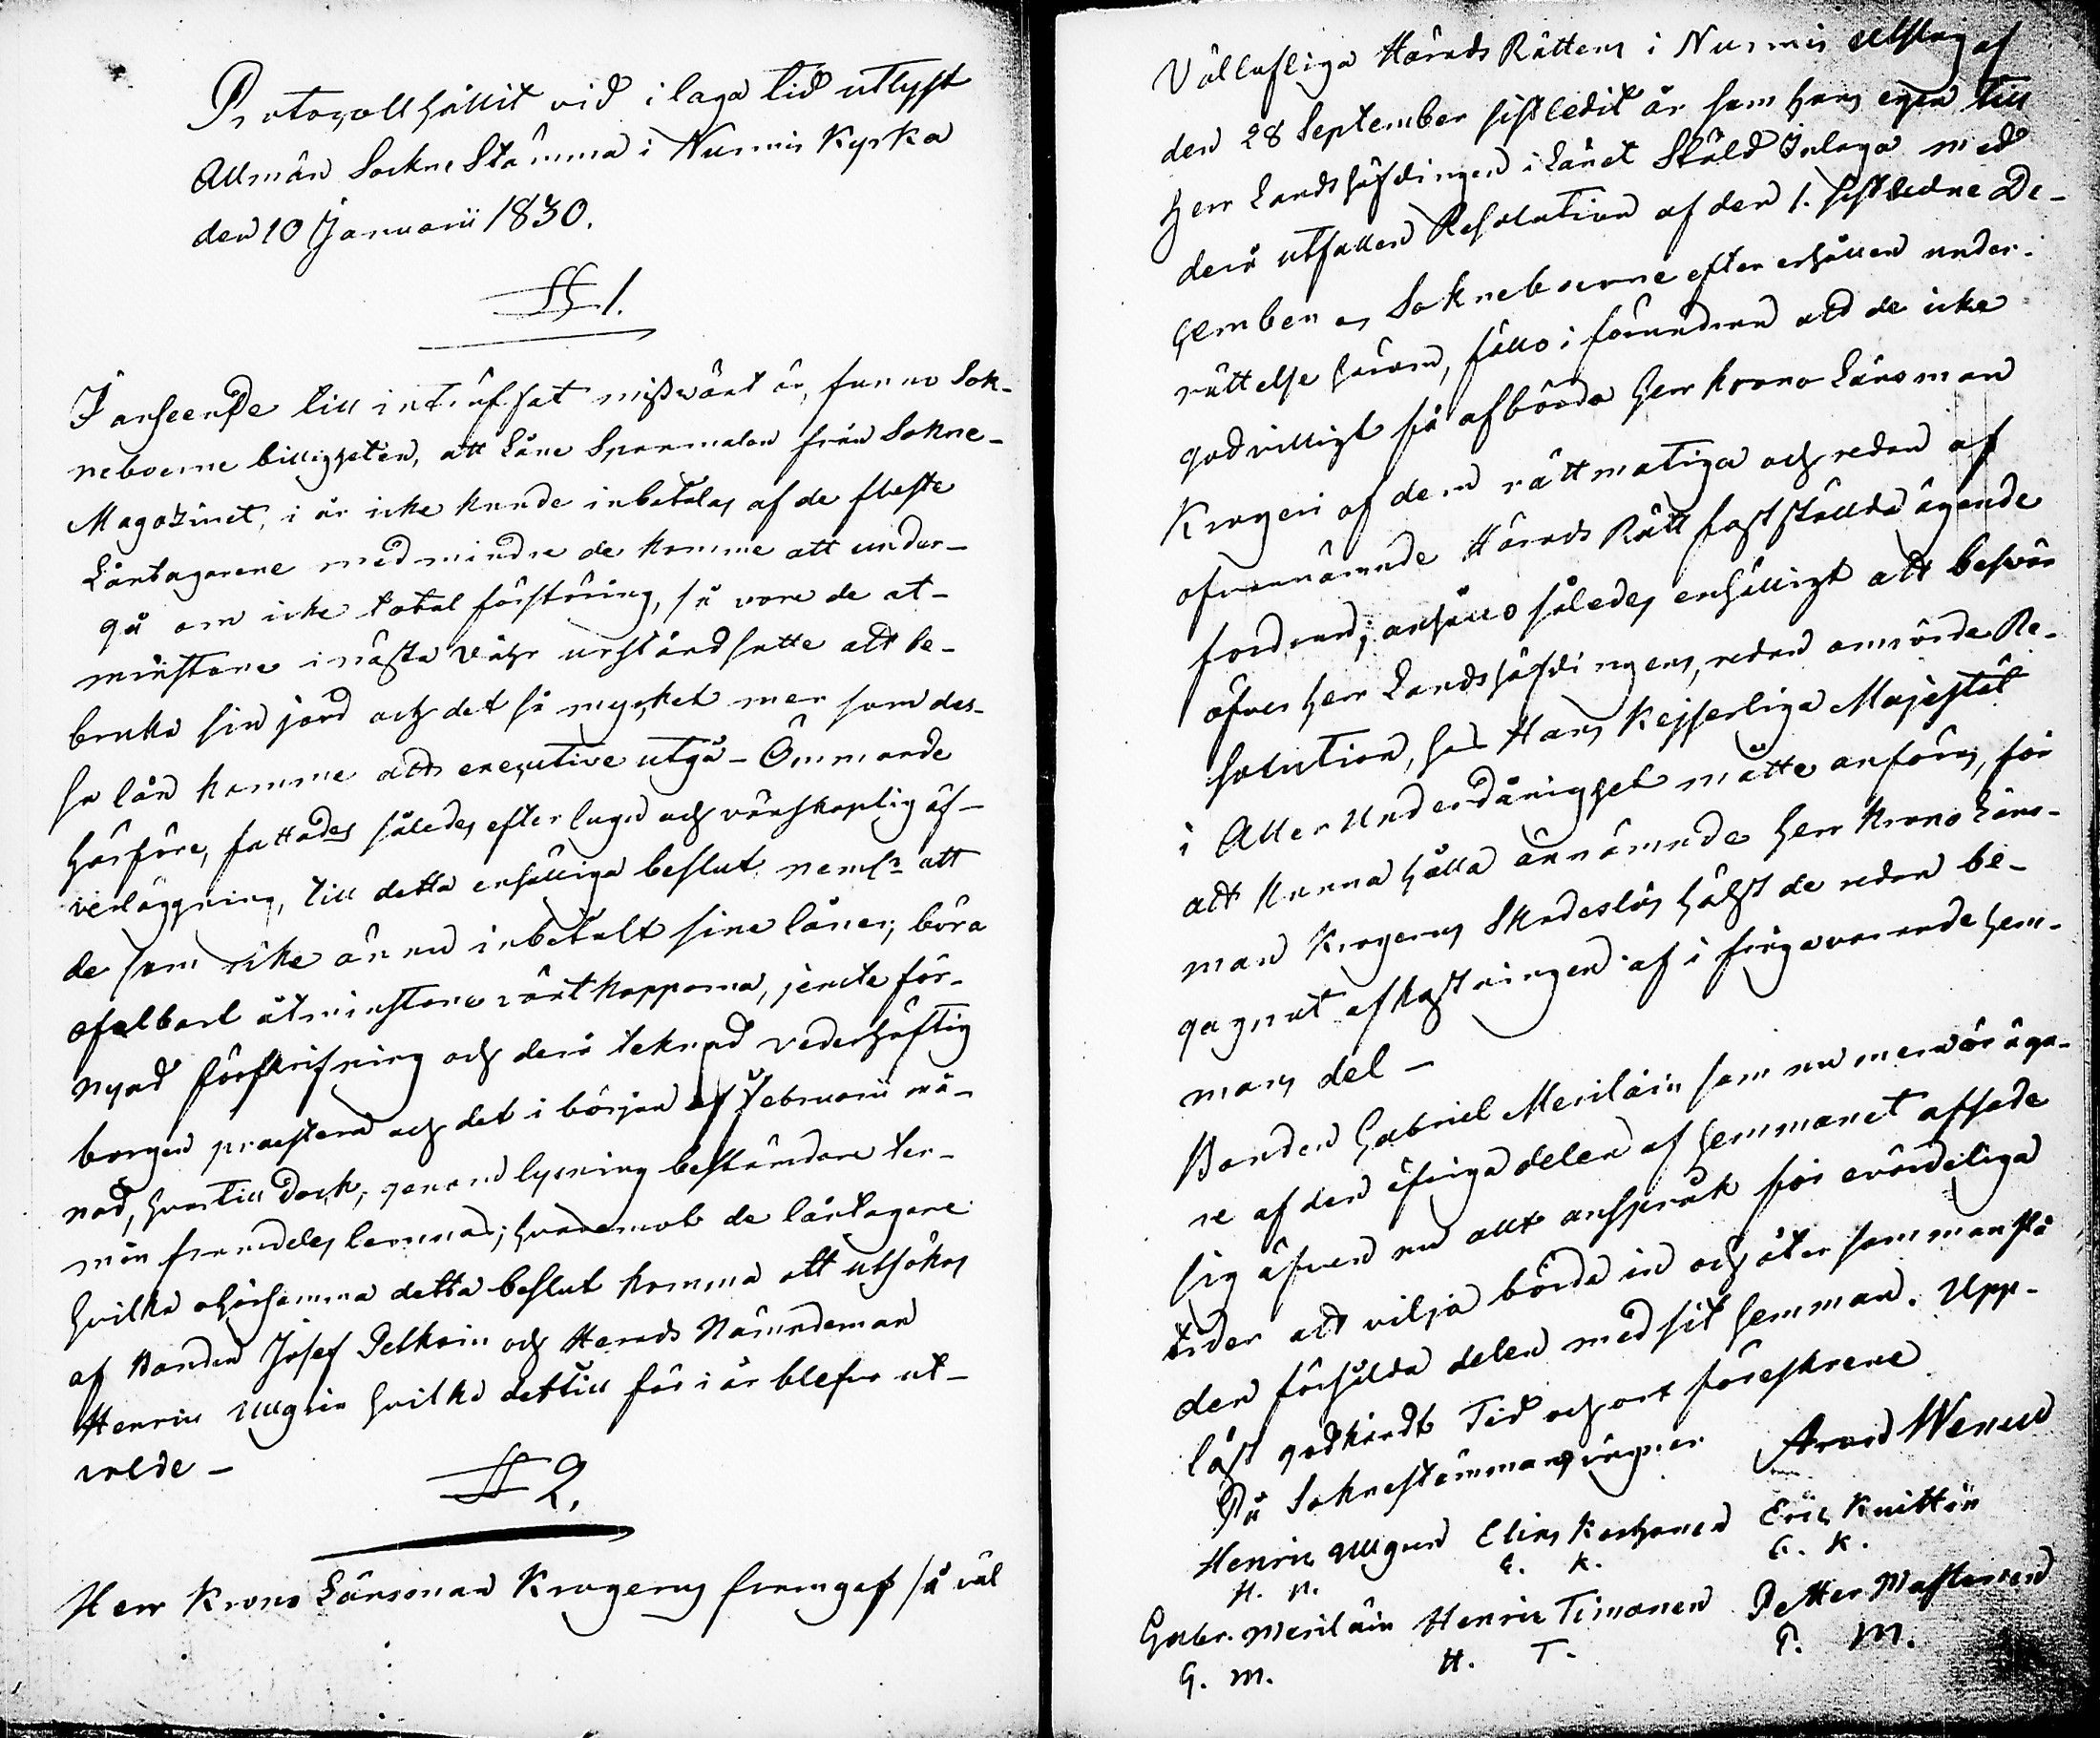 Protocoll hållit vid i laga tid utlyst
Allmän Sockne Stämma i Nurmis Kyrka
den 10 Januarii 1830.
§ 1.
I anseende till inträffat missväxt år, funno Sok-
neboerne billigheten, att Låne Spanmålen från Sokne-
Magazinet, i år icke kunde inbetalas af de fleste
Låntagarene med mindre de komme att under-
gå om icke total förstöring, så vore de at-
minstone i nästa Våhr urståndsatte att be-
bruka sin jord och det så mycket mer som des-
sa lån komme att executive utgå – Ömmande
härföre, fattades således efter lugn och vänskaplig öf-
verläggning, till detta enhälliga beslut neml: att
de som icke ännu inbetalt sine låner, böra
ofelbart åtminstone växt kapporna, jemte för-
nyad förskrifning och derå teknad vederhäftig
borgen praestera och det i början af Februarii må-
nad, hvartill dock, genom lysning bestämdare ter-
min framdeles lemnas; hvaremot de låntagare
hvilka ohörsamma detta beslut komma att utsökas
af Bonden Josef Pelkoin och Herads Nämndeman
Henric Uugrin hvilka dettill för i år blefvo ut-
valde –
§ 2.
Herr Krono Länsman Krogerus framgaf så väl
Vällofliga Härads Rättens i Nurmis Utslag af
den 28 September sistledit år som hans egen till
Herr Landshöfdingen i Länet Stäld Inlaga med
derå utfallen Resolution af den 1. sistledne De-
cember och Sokneboerne efter erhållen under-
rättelse härom, föllo i förundran att de icke
godvilligt få afbörda Herr Krono Länsman
Krogeri af dem rättmätiga och redan af
ofvannämnde Härads Rätt fastställda ägande
fordran; anhöllo således enhälligt att besvär
öfver Herr Landshöfdingens, redan omrörde Re-
solution, hos Hans Kejserliga Majestät
i Aller Underdånighet måtte anföras, för
att kunna hålla ännämnde Herr Krono Läns-
man Krogerus Skadeslös hälst de redan be-
gagnat afkastningen af i frågavarande hem-
mans del –
Bonden Gabriel Meriläin som nu mera är äga-
re af den öfriga delen af hemmanet afsade
sig äfven nu allt anspråk för evärdeliga
tider att vilja börda in och åter sammanslå
den försålda delen med sit hemman. Upp-
läst godkändt Tid och ort föreskrene
På Soknestämmans vägner Arvid Wenell
Henric Uugren Elias Korhonen Eric Knittin
H. U. E. K. E. K.
Gabr. Meriläin Henric Timonen Petter Mustonen
G. M. H. T. P. M.